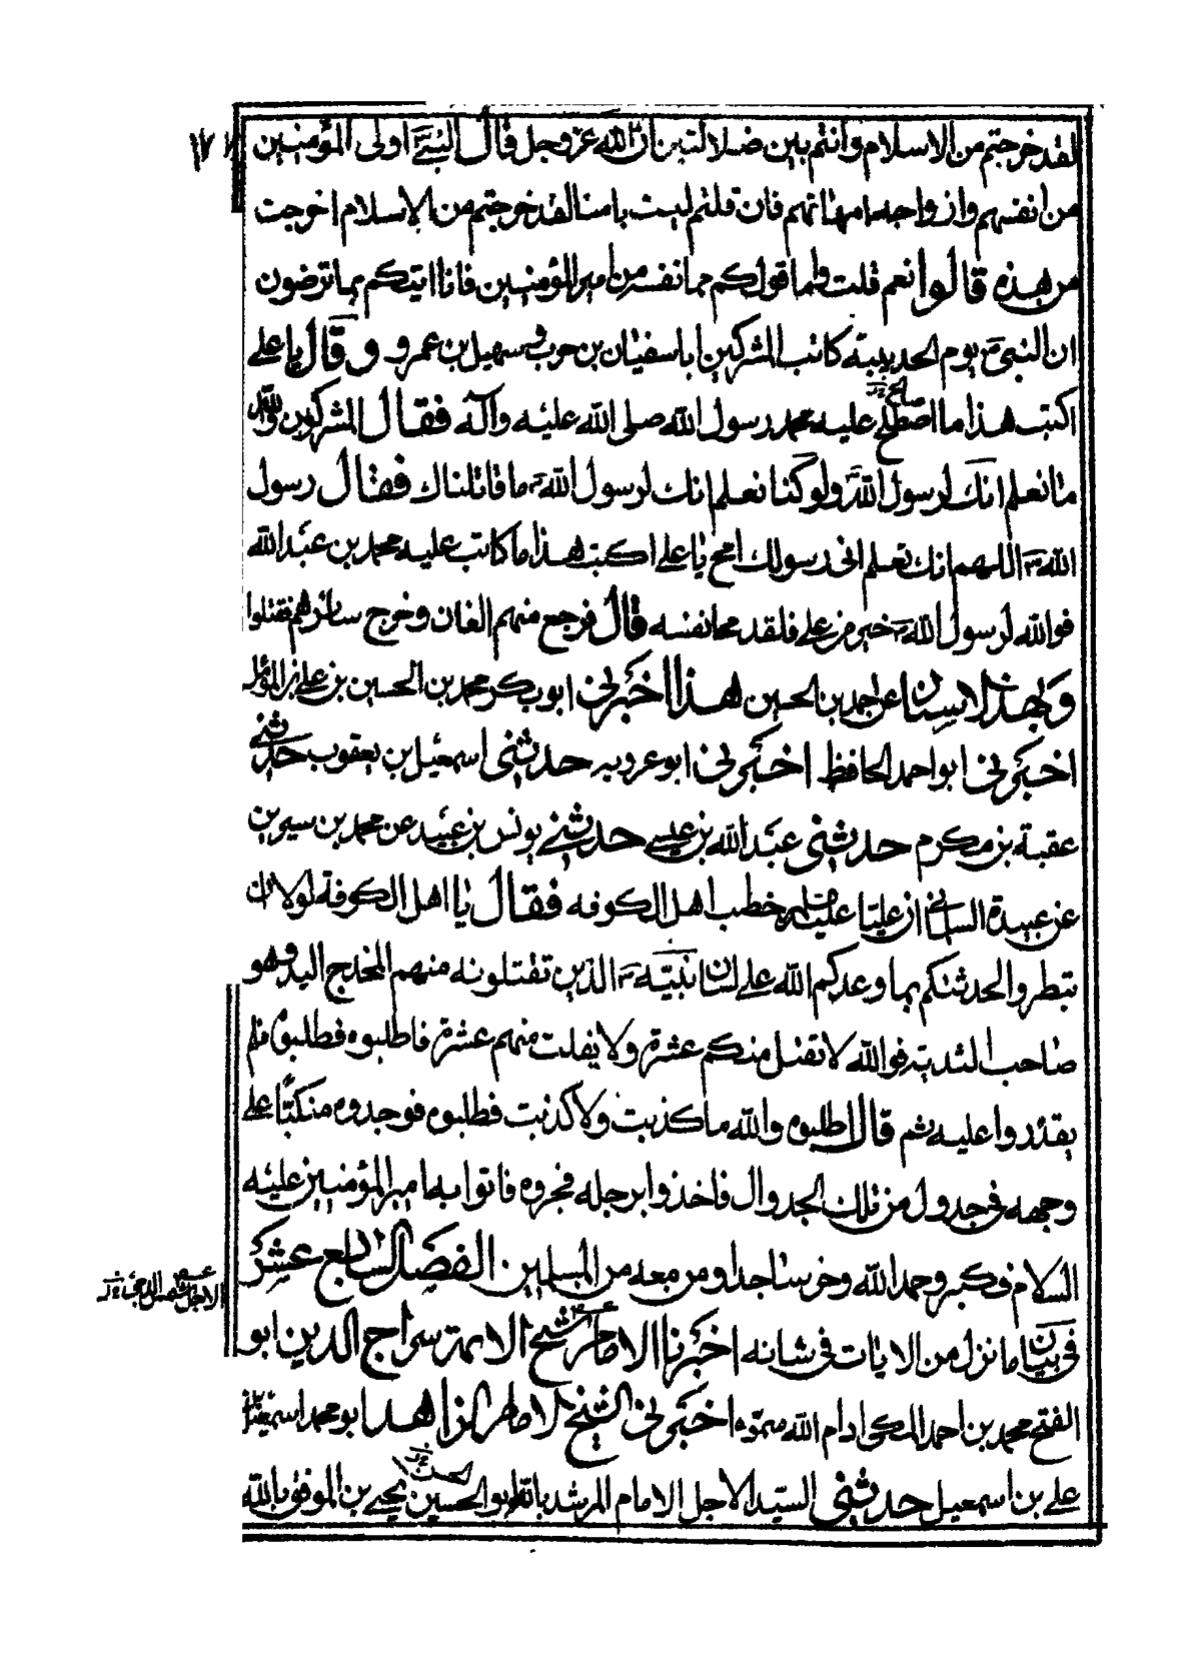 لقد خرجتم من الاسلام وانتم بين ضلالتين ان الله عز وجل قال النبي اولى المؤمنين
من انفسهم وازواجه امهاتهم فان قلتم ليست بامنا لقد خرجتم من الاسلام اخرجت
من هذه قالوا نعم قلت واما قولكم محا نفسه من امير المؤمنين فانا اتيكم بما ترضون
ان النبى ص يوم الحديبية كاتب المشركين ابا سفيان بن حرب و سهيل بن عمرو و قال يا على
اكتب هذا ما اصطلح عليه محمد رسول الله صلى الله عليه وآله فقال المشركون والله
ما نعلم انك لرسول الله ولو كنا نعلم انك لرسول الله ص ما قاتلناك فقال رسول
الله ص اللهم انك تعلم انى رسولك امح يا على اكتب هذا ما كاتب عليه محمد بن عبد الله
فوالله لرسول الله ص خير من على فلقد محا نفسه قال فرجع منهم الفان وخرج سائرهم فقتلوا
وبهذا الاسناد عن احمد بن الحسين هذا اخبرنى ابو بكر محمد بن الحسين بن على بن المؤمل
اخبرنى ابو احمد الحافظ اخبرنى ابو عروبه حدثنى اسمعيل بن يعقوب حدثنى
عقبة بن مكرم حدثنى عبد الله بن عيسى حدثنى يونس بن عبيد عن محمد بن سيرين
عن عبيدة السلمانى ان عليا عليه السلام خطب اهل الكوفه فقال يا اهل الكوفة لولا ان
تبطروا لحدثتكم بما وعدكم الله على لسان نبيّه ص الذين تقتلونه منهم المخدج اليد وهو
صاحب الثدية فوالله لا تقتل منكم عشرة ولا يفلت منهم عشرة فاطلبوه فطلبوه فلم
يقدروا عليه ثم قال اطلبوه والله ما كذبت ولا كذبت فطلبوه فوجدوه منكبّا على
وجهه فى جدول من تلك الجدوال فاخذوا برجله فجروه فاتوا به امير المؤمنين عليه
السلام فكبر وحمد الله وخر ساجدا ومن معه من المسلمين الفصل السابع عشر
فى بيان ما نزل من الايات فى شانه اخبرنا الامام شيخ الائمة سراج الدين ابو
الفتح محمد بن احمد المكى ادام الله سموّه اخبرنى الشيخ الامام الزاهد ابو محمد اسمعيل بن
على بن اسمعيل حدثنى السيّد الاجل الامام المرشد بالله ابو الحسين يحيى بن الموفق بالله